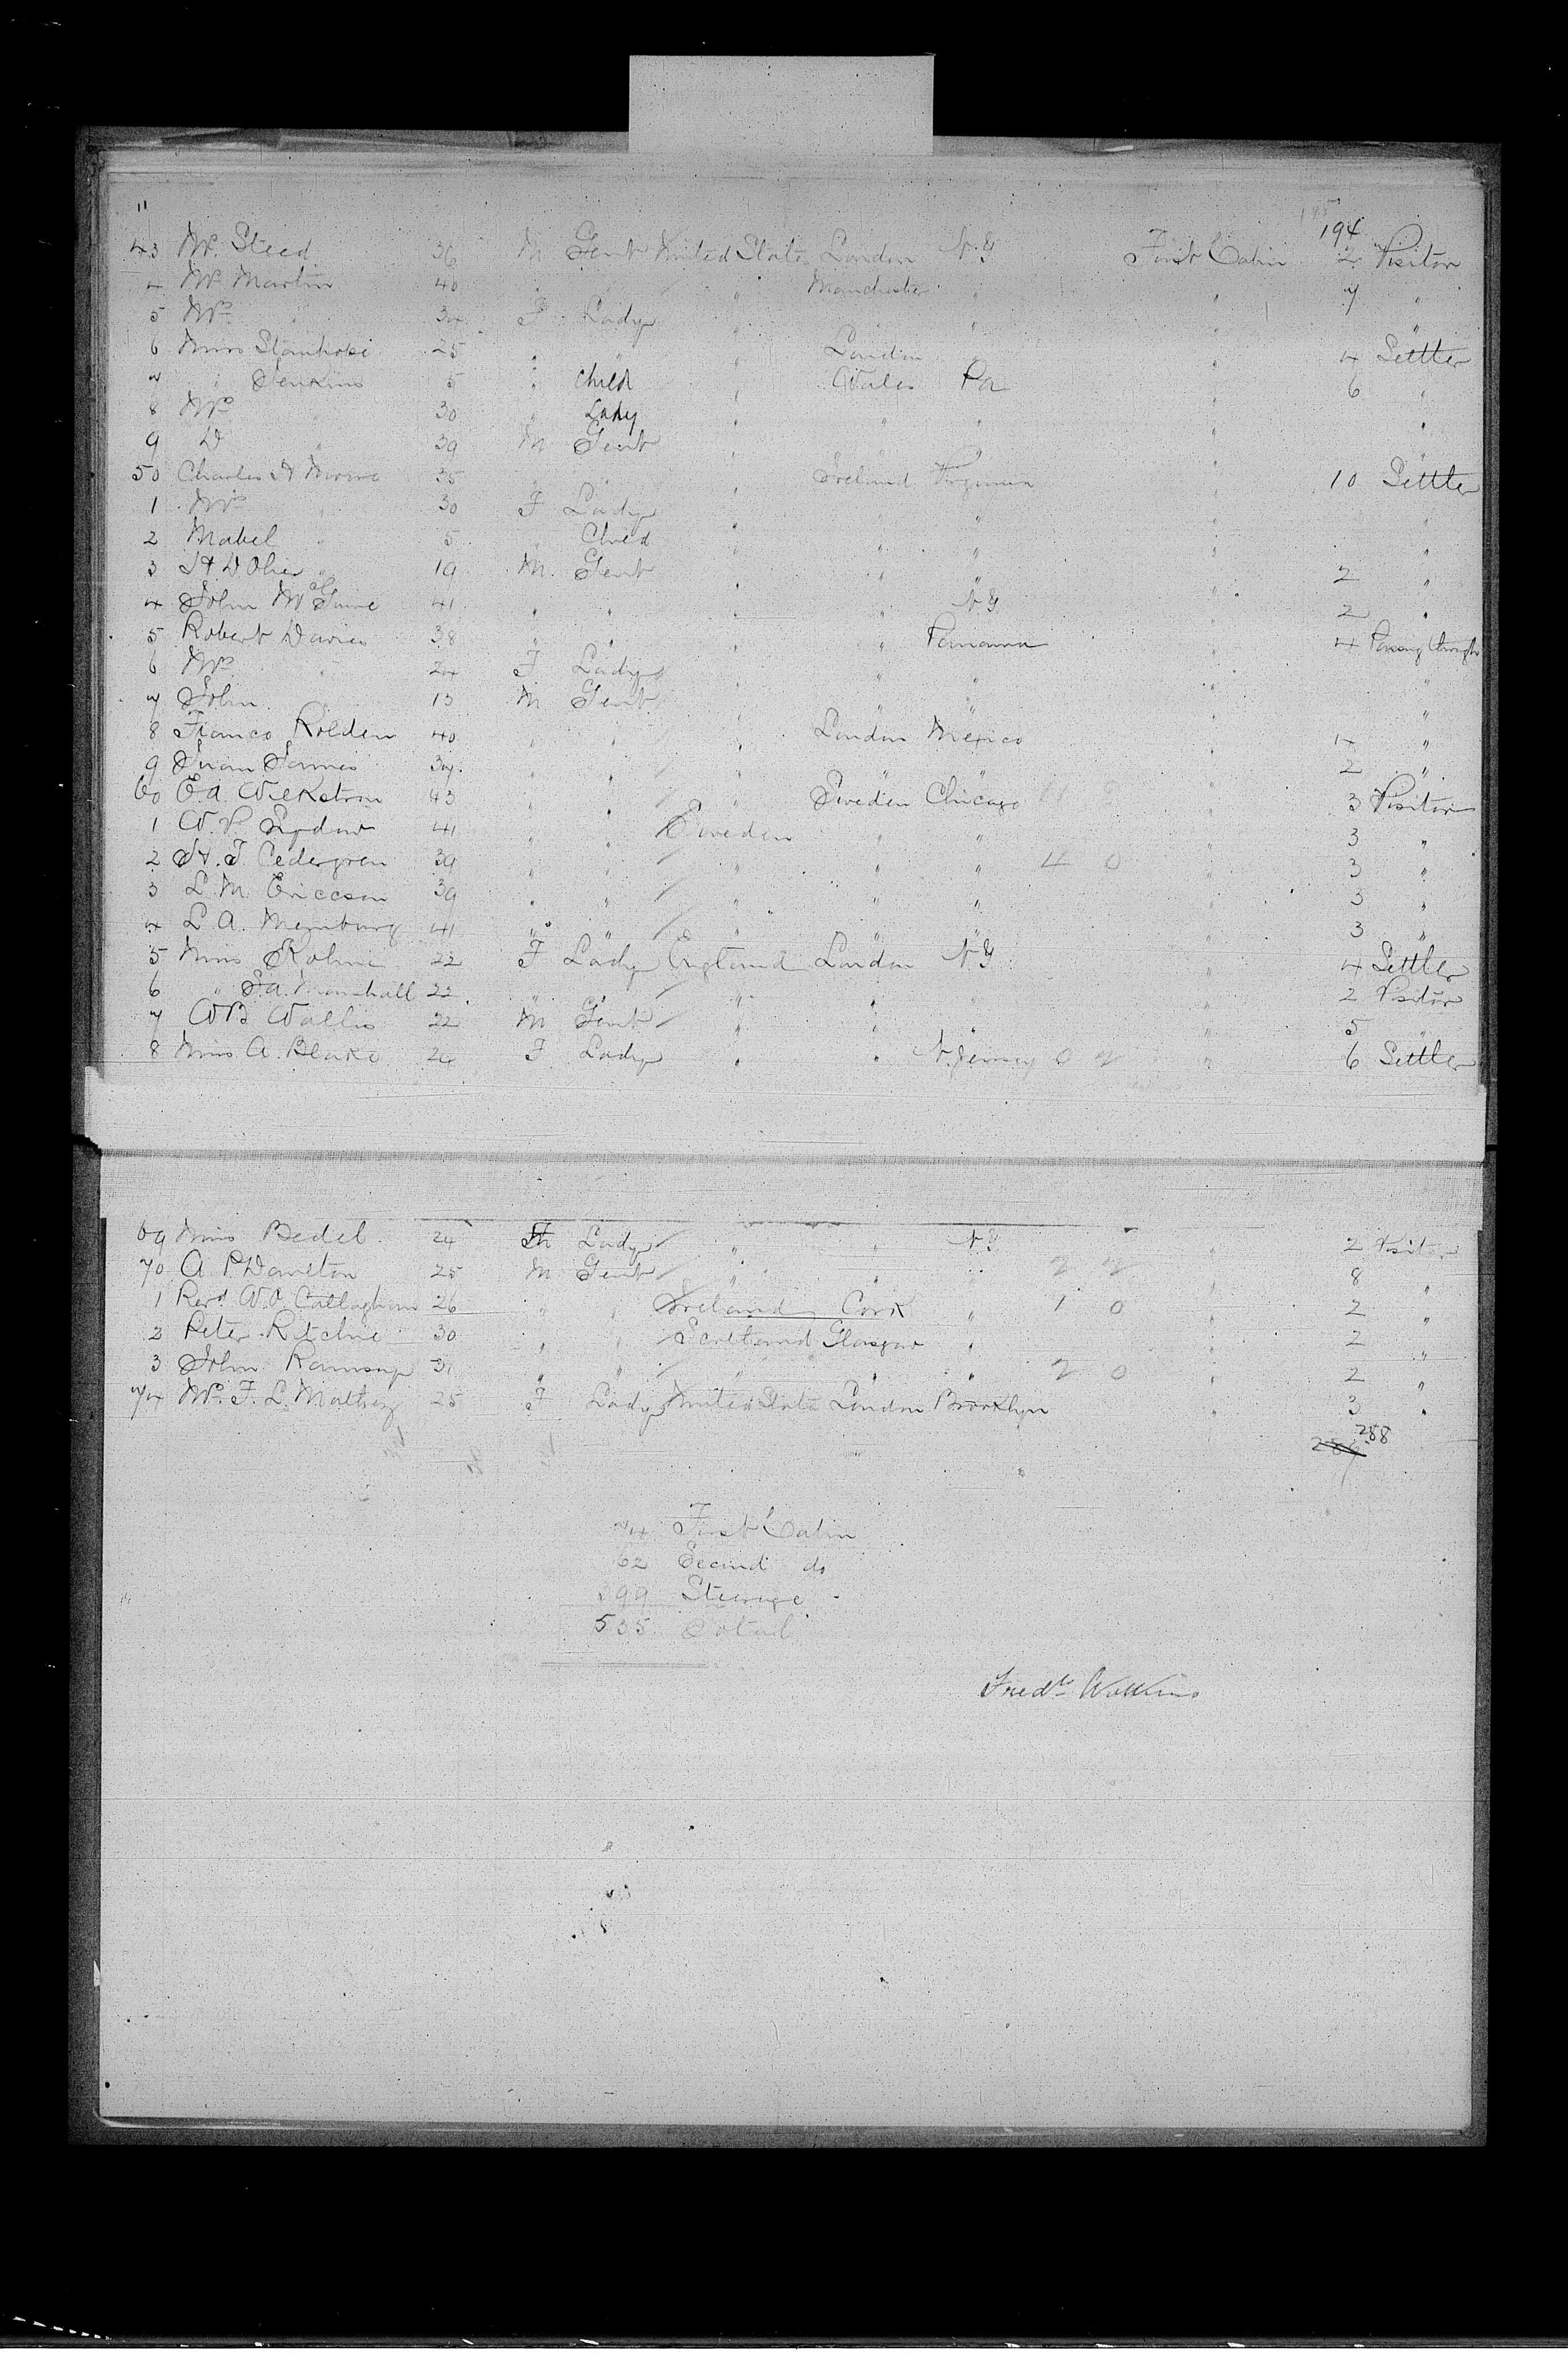 11
194
43 Mr. Steed 36 M Gent United States London N.Y First Cabin 2 Visitor
4 Mr Martin 40 " " " Manchester " " 7 "
5 Mrs " 34 F Lady " " " " "
6 Miss Stanhope 25 " " " London " " 4 Settler
7 " Jenkins 5 " Child " Wales Pa " 6 "
8 Mrs " 30 " Lady " " " " "
9 D " 39 M Gent " " " " "
50 Charles H Moore 35 " " " Ireland Virginia " 10 Settler
1 Mrs " 30 F Lady " " " " "
2 Mabel " 5 " Child " " " " "
3 19 M. Gent " " " 2 "
4 John McGuire 41 " " " " N.Y " 2 "
5 Robert Davies 38 " " " " Panama " 4 Passing through
6 Mrs " 24 F Lady " " " " "
7 John " 13 M Gent " " " " "
8 Franco Rolden 40 " " " London Mexico " 4 "
9 34 " " " " " " 2 "
60 E.A. Wilkstrom 43 " " " Sweden Chicago " 3 Visitor
1 W. P. 41 " " Sweden " " " 3 "
2 H. T. Cedergren 39 " " " " " 4 0 " 3 "
3 L. M. Ericcson 39 " " " " " " 3 "
4 L A. 41 " " " " " " 3 "
5 Miss 22 F Lady England London N.Y " 4 Settler
6 " Marshall 22 " " " " " " 2 Visitor
7 W B Wallis 22 M Gent " " " " 5 "
8 Miss A. Blake 24 F Lady " " N. Jersey " 6 Settler
69 Miss Bedel 24 F Lady " " N.Y " 2 Visitor
70 A. P 25 M Gent " " " " 8 "
1 Revd W. O Callaghan 26 " " Ireland Cork " 1 0 " 2 "
2 Peter Ritchie 30 " " Scotland Glasgow " " 2 "
3 John Ramsay 31 " " " " " 2 0 " 2 "
74 Mrs. F. L. Maltby 25 F Lady United States London Brooklyn " 3 "
288
74 First Cabin
62 Second do
399 Steerage
535 Total
Fredk Watkins